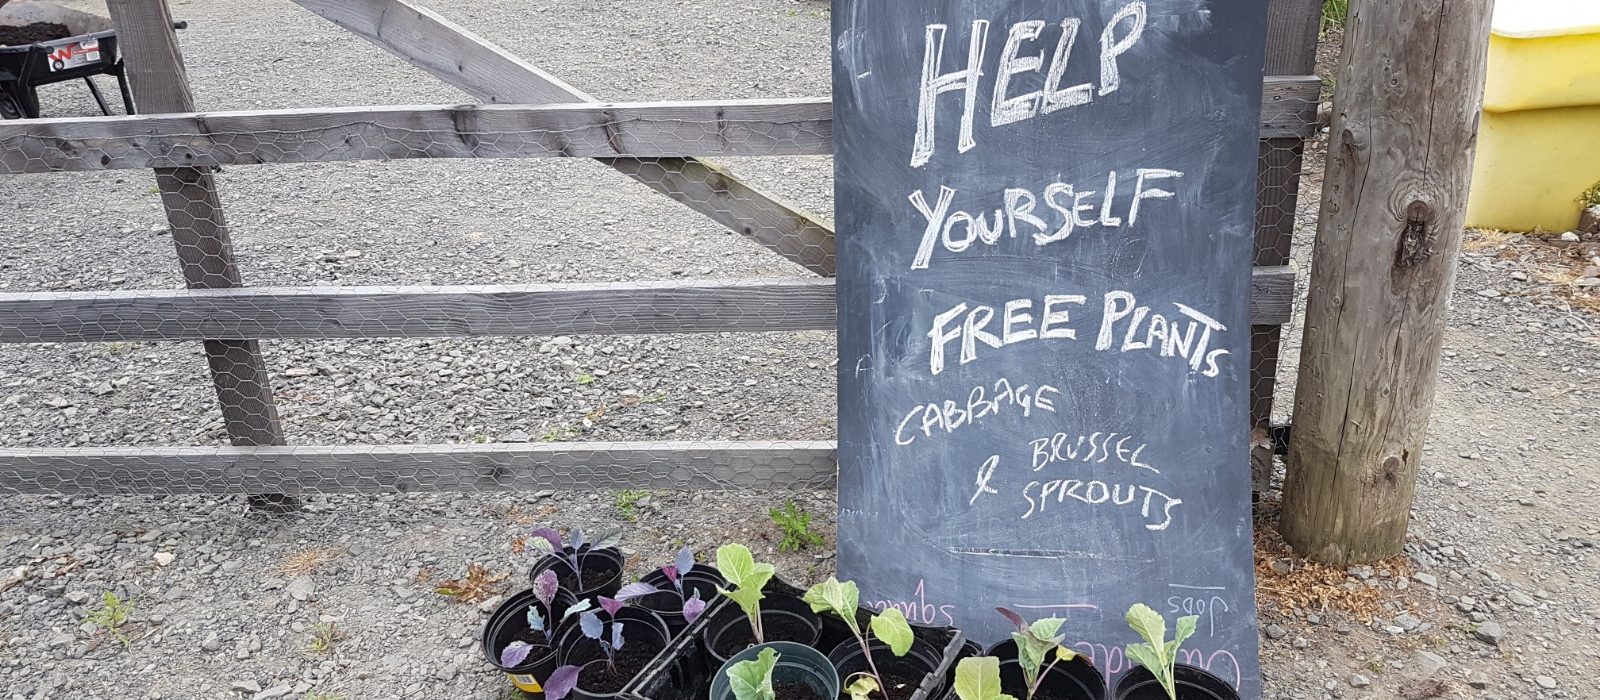 HELP
YOURSELF
FREE PLANTS
CABBAGE
& BRUSSEL
SPROUTS
JOBS